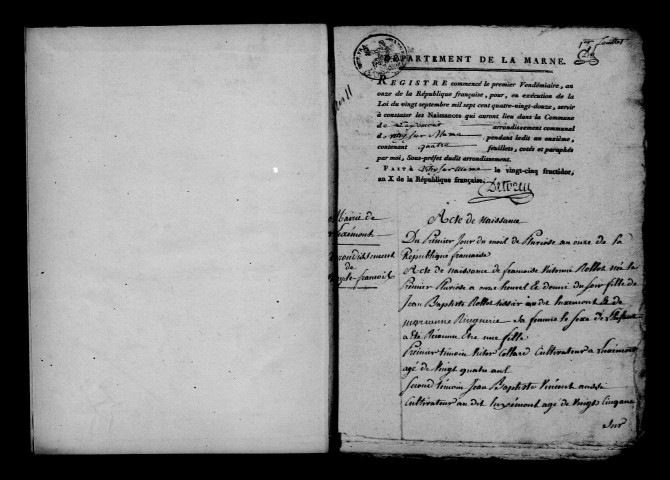 1er feuillet
DÉPARTEMENT DE LA MARNE.
REGISTRE commencé le premier Vendémiaire, an
onze de la République française, pour, en exécution de la
Loi du vingt septembre mil sept cent quatre-vingt-douze, servir
à constater les Naissances qui auront lieu dans la Commune
de arrondissement communal
de Vitry sur Marne pendant ledit an onzième,
contenant quatre feuillets, cotés et paraphés
par moi, Sous-préfet dudit arrondissement.
FAIT à Vitry sur Marne le vingt-cinq fructidor,
an X de la République française.
Mairie de
Luxémont
arrondissement
de
Acte de naissance
Du Premier Jour du mois de Pluviose an onze de la
République francaise
Acte de naissance de francoise Victoire Rollot née le
Premier Pluviose a onze heures du soir fille de
Jean Baptiste Rollot au dit Luxemont & de
marianne sa femme le sexe de
a été Reconnu Être une fille
Premier témoin Victor Collard Cultivateur a Luxémont
agé de Vingt quatre ans
Second témoin Jean Baptiste Vincent aussi
Cultivateur au dit Luxémont agé de Vingt Cinq ans
Sur